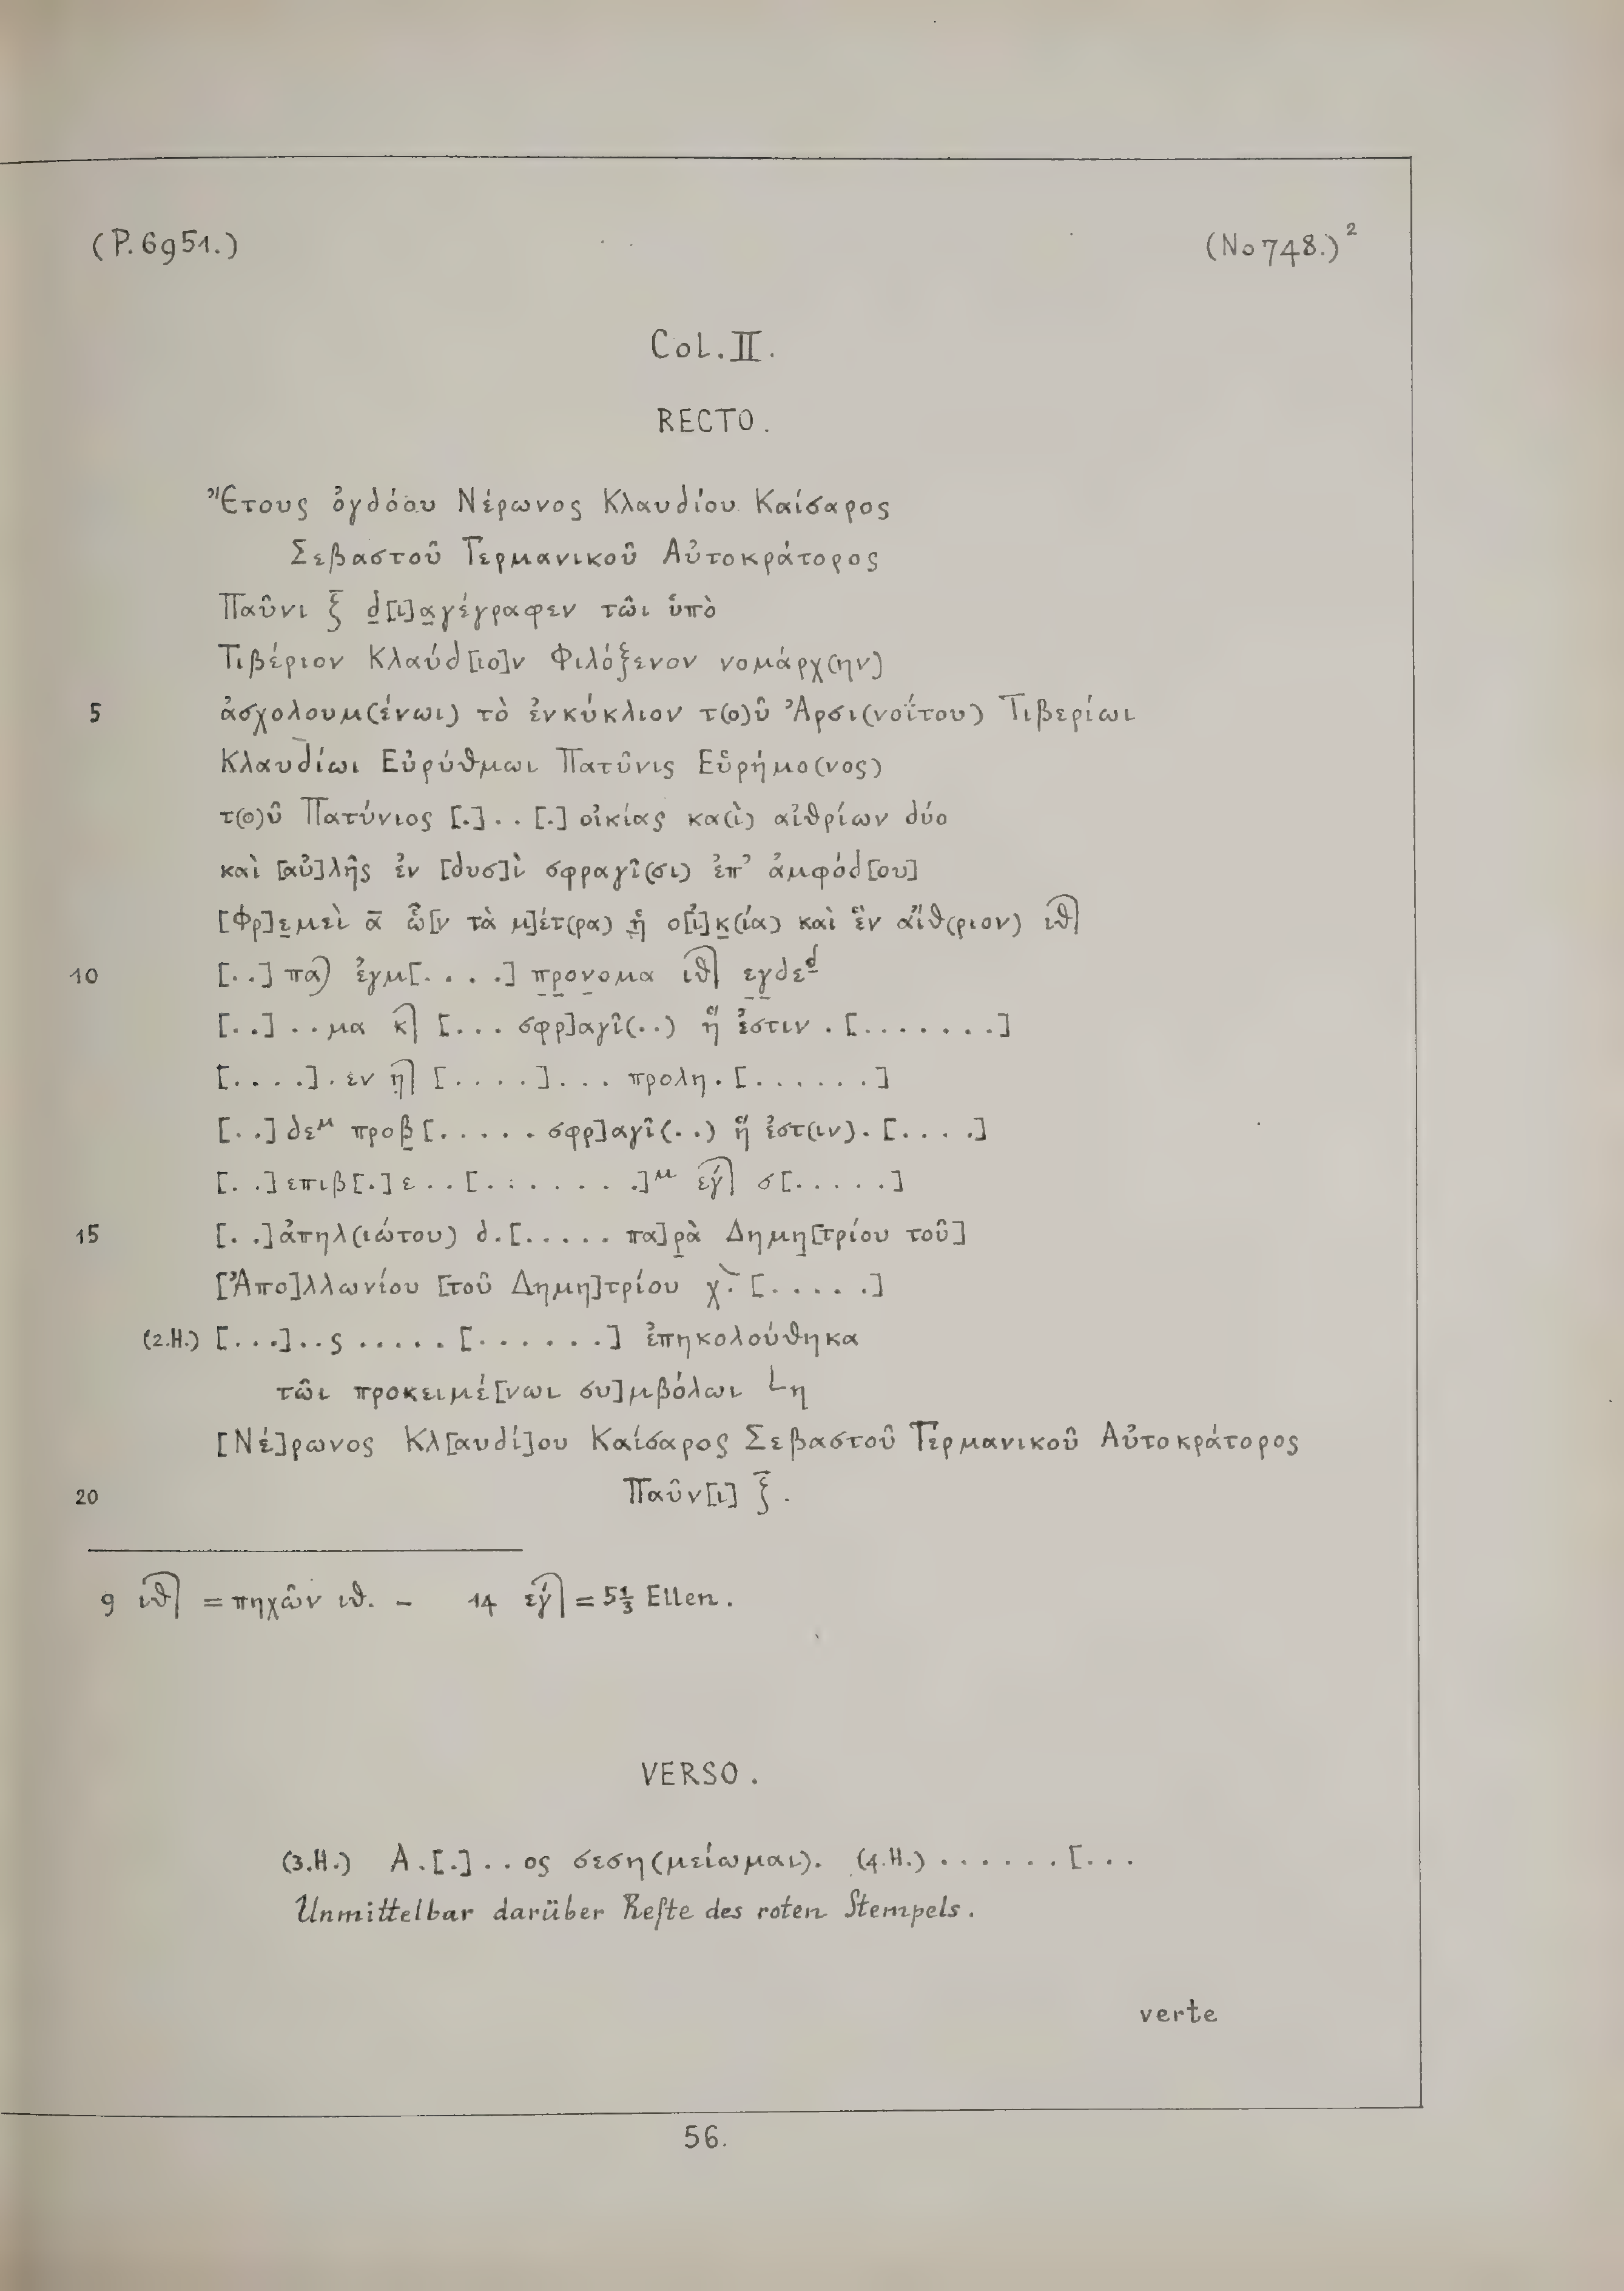 (P. 6951.) (No 748.)²
Col. II.
RECTO.
Ἔτους ὀγδόου Νέρωνος Κλαυδίου Καίσαρος
Σεβαστοῦ Γερμανικοῦ Αὐτοκράτορος
Παῦνι ξ̄ δ̣[ι]α̣γέγραφεν τῶι ὑπὸ
Τιβέριον Κλαύδ[ιο]ν Φιλόξενον νομάρχ(ην)
5 ἀσχολουμ(ένωι) τὸ ἐνκύκλιον τ(ο)ῦ Ἀρσι(νοΐτου) Τιβερίωι
Κλαυδίωι Εὐρύθμωι Πατῦνις Εὑρήμο(νος)
τ(ο)ῦ Πατύνιος [.]..[.] οἰκίας κα(ὶ) αἰθρίων δύο
καὶ [αὐ]λῆς ἐν [δυσ]ὶ σφραγῖ(σι) ἐπ' ἀμφόδ[ου]
[Φρ]ε̣μεὶ ᾱ ὧ[ν τὰ μ]έτ(ρα) ἡ̣ ο[ἰ]κ̣(ία) καὶ ἓν αἴθ(ριον) ιθ
10 [..] πα) ἐγμ[....] π̣ρ̣ον̣ομα ιθ ε̣γ̣δεδ
[..]..μα κ [... σφρ]αγῖ(..) ἥ ἐστιν .[.......]
[....].εν η̣ [....]... προλη.[......]
[..]δεμ προβ̣[..... σφρ]αγῖ(..) ἥ ἐστ(ιν).[....]
[..]επιβ[.]ε..[........]μ εγ́ σ[.....]
15 [..]ἀπηλ(ιώτου) δ.[..... πα]ρ̣ὰ Δημη̣[τρίου τοῦ]
[Ἀπο]λλωνίου [τοῦ Δημη]τρίου χ. [.....]
(2.H.) [...]..ς .....[......] ἐπηκολούθηκα
τῶι προκειμέ[νωι συ]μβόλωι Lη
[Νέ]ρωνος Κλ[αυδί]ου Καίσαρος Σεβαστοῦ Γερμανικοῦ Αὐτοκράτορος
20 Παῦν[ι] ξ̄.
9 ιθ = πηχῶν ιθ. – 14 εγ́ = 5⅓ Ellen.
VERSO.
(3.H.) Α.[.]..ος σεση(μείωμαι). (4.H.) ......[...
Unmittelbar darüber Reſte des roten Stempels.
verte
56.